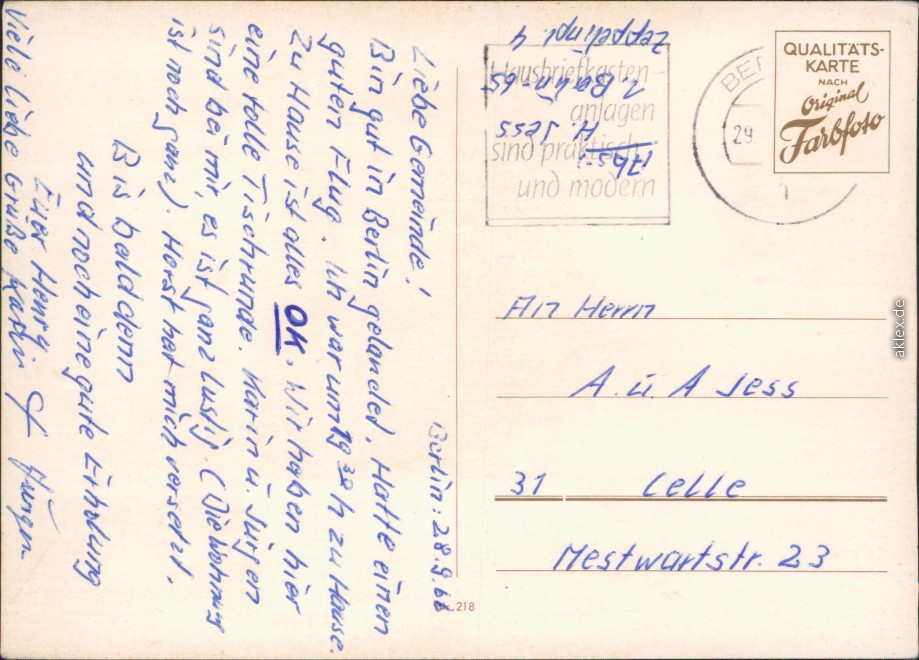 Berlin: 28.9.68
Liebe Gemeinde!
Bin gut in Berlin gelandet. Hatte einen
guten Flug. Ich war um 19 30 h zu Hause.
Zu Hause ist alles OK. Wir haben hier
eine tolle Tischrunde. Karin u. Jürgen
sind bei mir, es ist ganz lustig. (Die Wohnung
ist noch ganz). Horst hat mich versetzt.
Bis bald denn
und noch eine gute Erholung
Euer Henry
Viele liebe Grüße Karin & Jürgen
Abs.:
H. Jess
1 Berlin-65
Zeppelinpl. 4
Hausbriefkasten-
anlagen
sind praktisch
und modern
BER
29.
QUALITÄTS-
KARTE
NACH
Original
Farbfoto
An Herrn
A. u. A Jess
31 Celle
Mestwartstr. 23
218
aklex.de